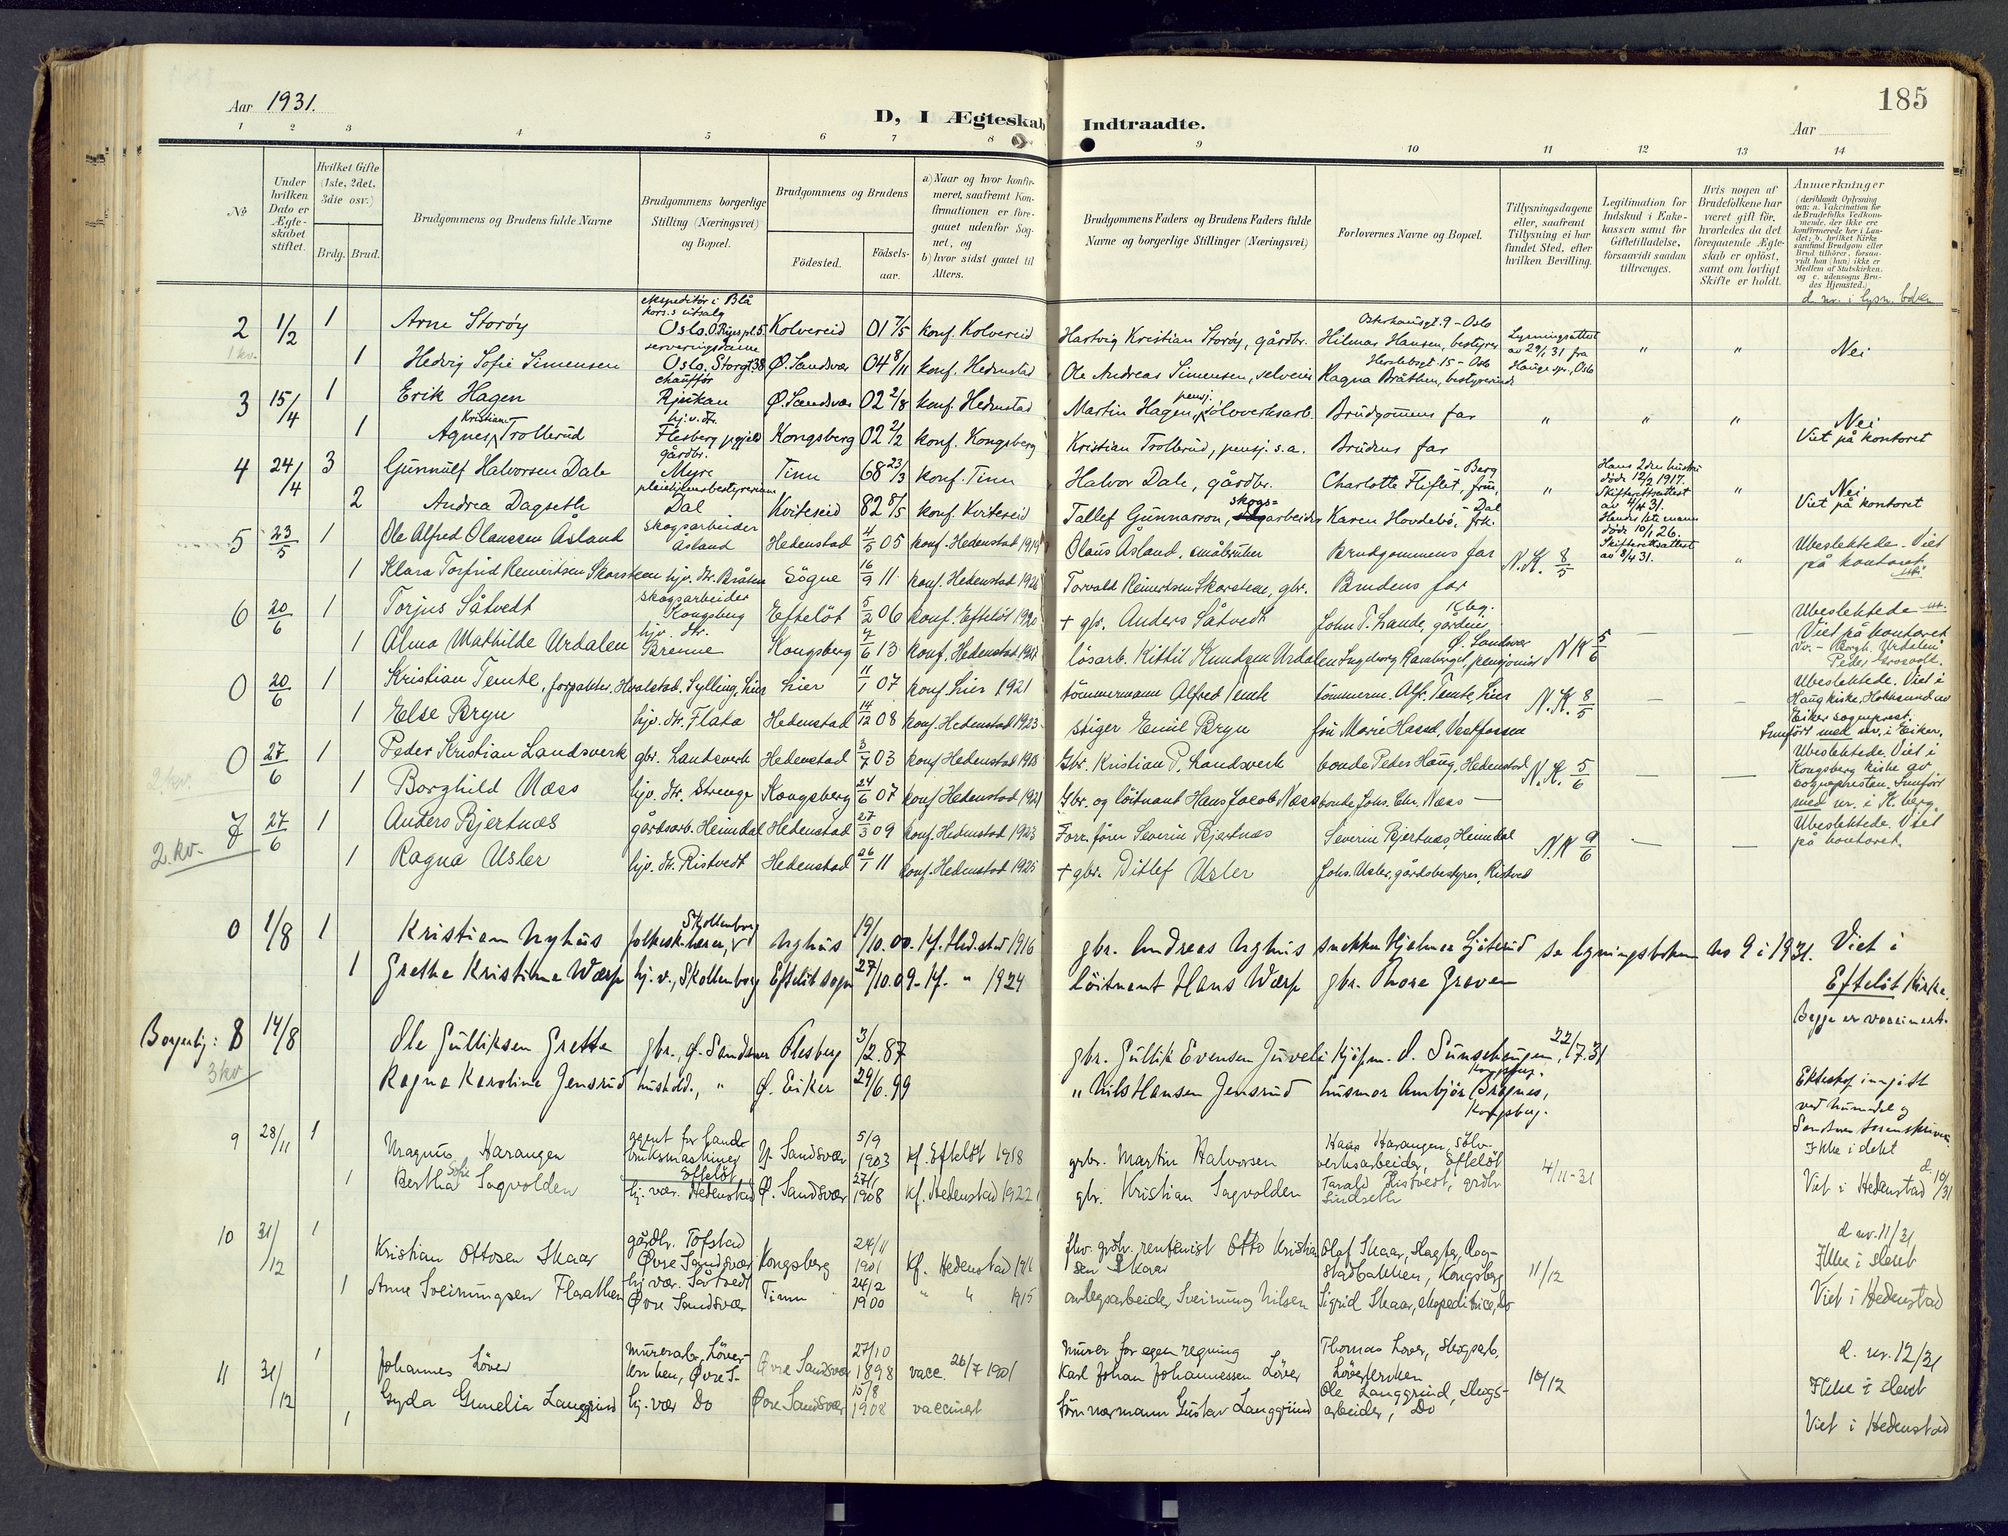 Aar 1931.
185
D, I Ægteskab Indtraadte.
Aar
1 2 3 4 5 6 7 8 9 10 11 12 13 14
No
Under hvilken Dato er Ægteskabet stiftet.
Hvilket Gifte (1ste, 2det, 3die osv.)
Brdg. Brud.
Brudgommens og Brudens fulde Navne
Brudgommens borgerlige Stilling (Næringsvei) og Bopæl.
Brudgommens og Brudens
Fødested.
Fødselsaar.
a) Naar og hvor konfirmeret, saafremt Konfirmationen er foregaaet udenfor Sognet, og
b) hvor sidst gaaet til Alters.
Brudgommens Faders og Brudens Faders fulde Navne og borgerlige Stillinger (Næringsvei)
Forlovernes Navne og Bopæl.
Tillysningsdagene eller, saafremt Tillysning ei har fundet Sted, efter hvilken Bevilling.
Legitimation for Indskud i Enkekassen samt for Giftetilladelse, forsaavidt saadan tiltrænges.
Hvis nogen af Brudefolkene har været gift før, hvorledes da det foregaaende Ægteskab er opløst, samt om lovligt Skifte er holdt.
Anmærkninger
(deriblandt Oplysning om: a. Vaccination for de Brudefolks Vedkommende, der ikke ere konfirmerede her i Landet; b. hvilket Kirkesamfund Brudgom eller Brud tilhører, forsaavidt han (hun) ikke er Medlem af Statskirken, og c. udensogns Brudes Hjemsted.)
d. nr. i lysn. boken
2 1/2 1 Arne Storøy ekspeditør i Blå kors's utsalg Oslo. Kolvereid 01 7/5 konf. Kolvereid Hartvig Kristian Storøy, gårdbr. Hilmar Hansen, bestyrer Osterhausgt. 9 - Oslo Lysningsattest av 29/1 31 fra Hauge spr., Oslo " " Nei
1 kv.
1 Hedvig Sofie Simensen serveringsdame Oslo, Storgt. 38 Ø. Sandsvær 04 8/11 konf. Hedenstad Ole Andreas Simensen, selveier Ragna Bråthen, bestyrerinde
3 15/4 1 Erik Hagen chauffør Rjukan Ø. Sandsvær 02 2/8 konf. Hedenstad Martin Hagen, pensj. sølvverksarb. Brudgomens far " " " Nei
1 Agnes Kristiane Trollerud hjv. dr. Flesberg pr.gjeld Kongsberg 02 2/2 konf. Kongsberg Kristian Trollerud, pensj. s.a. Brudens far Viet på kontoret
4 24/4 3 Gunnulf Halvorsen Dale gårdbr. Myre Tinn 68 23/3 konf. Tinn Halvor Dale, gårdbr. Charlotte Fliflet, frue, Berg " Hans 2den hustru døde 12/2 1917. Skifterettsattest av 4/4 31. " Nei
2 Andrea Dagseth pleiehjemsbestyrerinne Dal Kviteseid 82 8/5 konf. Kviteseid Tallef Gunnarson, skogsarbeider Karen Hovdebø, frk. - Dal Hendes 1ste mann døde 10/1 26. Skifterettsattest av 8/4 31. Viet på kontoret
5 23/5 1 Ole Alfred Olaussen Åsland skogsarbeider Åsland Hedenstad 4/5 05 konf. Hedenstad 1919 Olaus Åsland, småbruker Brudgommens far N.K. 8/5 " Ubeslektede. Viet på kontoret
1 Klara Torfrid Reinertsen Skorsteen hjv. dr. Bråten Søgne 16/9 11 konf. Hedenstad 1926 Torvald Reinertsen Skorsteen, gbr. Brudens far
6 20/6 1 Torjus Såtvedt skogsarbeider Kongsberg Efteløt 5/2 06 konf. Efteløt 1920 + gbr. Anders Såtvedt John T. Lande, gårdeier Kbg. N K 5/6 — — Ubeslektede Viet på kontoret
1 Alma Mathilde Urdalen hjv. dr. Brenne Kongsberg 4/6 13 konf. Hedenstad 1927 løsarb. Kittil Knudsen Urdalen Ingeborg Ramberget, pensjonist Ø. Sandsvær
0 20/6 1 Kristian Temte, forpakter, Hvalstad, Sylling, Lier Lier 11/1 07 konf. Lier 1921 tømmermann Alfred Temte tømmerm. Alf. Temte, Lier N.K. 8/5 — — Ubeslektede. Viet i Haug kirke, Hokksund av Eiker sogneprest. Innført med nr. i Eiker.
1 Else Bryn hjv. dr. Flata Hedenstad 14/12 08 konf. Hedenstad 1923 stiger Emil Bryn fru Marie Haard, Vestfossen
0 27/6 1 Peder Kristian Landsverk gbr. Landsverk Hedenstad 3/7 03 konf. Hedenstad 1918 Gbr. Kristian P. Landsverk bonde Peder Haug, Hedenstad N.K. 5/6 — — Ubeslektede. Viet i Kongsberg kirke av sognepresten. Innført med nr. i K.berg.
2. kv.
1 Borghild Næss hjv. dr. Strenge Kongsberg 24/6 07 konf. Hedenstad 1921 Gbr. og løitnant Hans Jacob Næss bonde Johs. Chr. Næss —
7 27/6 1 Anders Bjertnæs gårdsarb. Heimdal Hedenstad 27/3 09 konf. Hedenstad 1923 Forr. fører Severin Bjertnæs Severin Bjertnæs, Heimdal N.K 9/6 — — Ubeslektede. Viet på kontoret.
2 kv.
1 Ragna Usler hjv. dr. Ristvedt Hedenstad 26/1 11 konf. Hedenstad 1925 + gbr. Ditlef Usler Johs. Usler, gårdsbestyrer, Ristvedt
0 1/8 1 Kristian Nyhus folkesk.lærer, Skollenborg Nyhus 19/10.00 kf. Hed.stad 1916 gbr. Andreas Nyhus snekker Hjalmar Sjøterud se lysningsboken no 9 i 1931. Viet i
1 Grethe Kristine Wærp hj. v., Skollenborg Efteløt sogn 27/10.09 kf. " 1924 løitnant Hans Wærp gbr. Thore Graven Efteløt Kirke.
Begge er vaccinert.
Borgerlig: 8 14/8 Ole Gulliksen Grette gbr., Ø. Sandsvær Flesberg 3/2.87 gbr. Gullik Evensen Juveli Kjøpm. O. Sunsehaugen, Kongsberg. 22/7.31
3 kv
Ragna Karoline Jensrud hushold., " Ø. Eiker 29/6.99 " Nils Hansen Jensrud husmor Ambjør Bragnes, Kongsberg. Ekteskap inngått ved Numedal og Sandsvær sorenskriver.
9 28/11 1 Magnus Harangen agent for landbruksmaskiner Efteløt Y. Sandsvær 5/9 1903 kf. Efteløt 1918 grbr. Martin Halvorsen Hans Harangen, sølvverksarbeider, Efteløt 4/11-31 Ikke i slekt
1 Bertha Sofie Sagvolden hj. vær. Hedenstad Ø. Sandsvær 27/1 1908 kf. Hedenstad 1922 gbr. Kristian Sagvolden Tarald Ristvedt, grdbr Lindseth Viet i Hedenstad d. 10/31
10 31/12 1 Kristian Ottosen Skaar gårdbr. Tofstad Øvre Sandsvær Kongsberg 24/11 1901 kf. Hedenstad 1916 fhv. grdbr. rentenist Otto Kristiansen Skaar Olaf Skaar, slagter, Rogstadbakken, Kongsberg 11/12 d nr. 11/31 Ikke i slekt
1 Anne Sveinungsen Flaathen hj. vær. Såtvedt Øvre Sandsvær Tinn 24/2 1900 " " 1915 anlegsarbeider Sveinung Nilsen Sigrid Skaar, ekspeditrice, Do Viet i Hedenstad
11 31/12 1 Johannes Løver murerarb., Løverbruken, Øvre S. Øvre Sandsvær 27/10 1898 vacc. 26/7 1901 murer for egen regning Karl Johan Johannessen Løver Thomas Løver, skogsarb. Løverbruken 10/12 d. nr. 12/31 Ikke i slekt
1 Gyda Gunelia Langgrind hj. vær Do Øvre Sandsvær 15/8 1908 vaccinert tømmermann Gustav Langgrind Ole Langgrind, skogsarbeider, Do Viet i Hedenstad